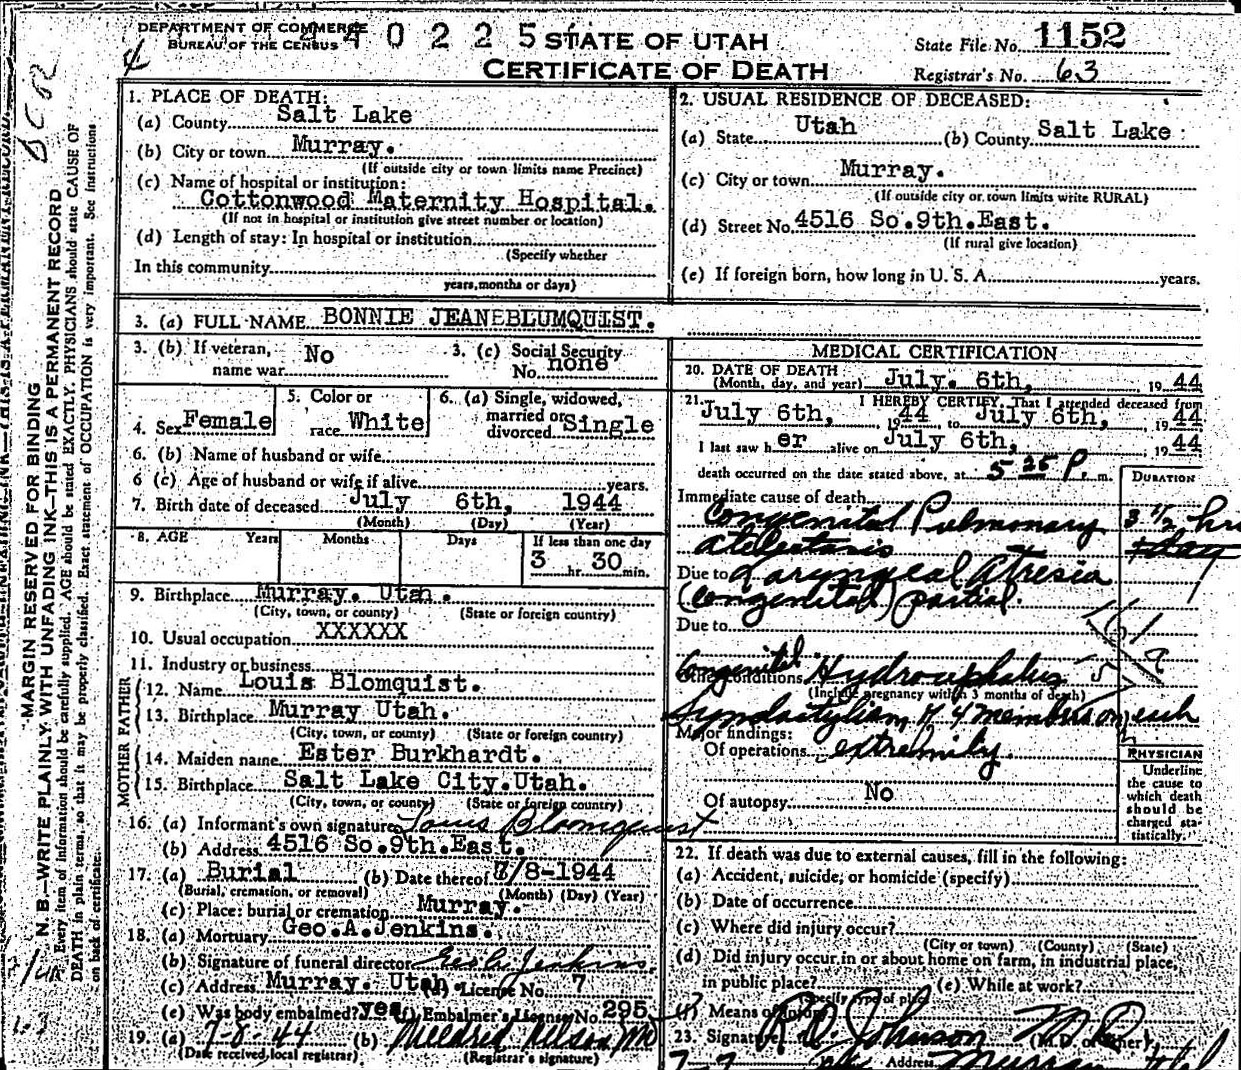 DEPARTMENT OF COMMERCE
BUREAU OF THE CENSUS
40225
STATE OF UTAH
CERTIFICATE OF DEATH
State File No. 1152
Registrar's No. 63
MARGIN RESERVED FOR BINDING
N. B.—WRITE PLAINLY, WITH UNFADING INK—THIS IS A PERMANENT RECORD
Every item of information should be carefully supplied. AGE should be stated EXACTLY. PHYSICIANS should state CAUSE OF
DEATH in plain terms, so that it may be properly classified. Exact statement of OCCUPATION is very important. See instructions
on back of certificate.
1. PLACE OF DEATH:
(a) County Salt Lake
(b) City or town Murray.
(If outside city or town limits name Precinct)
(c) Name of hospital or institution:
Cottonwood Maternity Hospital.
(If not in hospital or institution give street number or location)
(d) Length of stay: In hospital or institution
(Specify whether
In this community
years, months or days)
2. USUAL RESIDENCE OF DECEASED:
(a) State Utah (b) County Salt Lake
(c) City or town Murray.
(If outside city or town limits write RURAL)
(d) Street No. 4516 So.9th.East.
(If rural give location)
(e) If foreign born, how long in U. S. A. years.
3. (a) FULL NAME BONNIE JEANEBLUMQUIST.
3. (b) If veteran, name war No
3. (c) Social Security No. none
4. Sex Female
5. Color or race White
6. (a) Single, widowed, married or divorced Single
6. (b) Name of husband or wife
6 (c) Age of husband or wife if alive years.
7. Birth date of deceased July 6th, 1944
(Month) (Day) (Year)
8. AGE Years Months Days If less than one day
3 hr. 30 min.
9. Birthplace Murray. Utah.
(City, town, or county) (State or foreign country)
10. Usual occupation XXXXXX
11. Industry or business
FATHER
12. Name Louis Blomquist.
13. Birthplace Murray Utah.
(City, town, or county) (State or foreign country)
MOTHER
14. Maiden name Ester Burkhardt.
15. Birthplace Salt Lake City.Utah.
(City, town, or county) (State or foreign country)
16. (a) Informant's own signature Louis Bloomquist
(b) Address 4516 So.9th.East.
17. (a) Burial (b) Date thereof 7/8-1944
(Burial, cremation, or removal) (Month) (Day) (Year)
(c) Place: burial or cremation Murray.
18. (a) Mortuary Geo.A.Jenkins.
(b) Signature of funeral director Geo A Jenkins.
(c) Address Murray. Utah. (d) License No. 7
(e) Was body embalmed? yes (f) Embalmer's License No. 295
19. (a) 7-8-44 (b) Mildred Nelson
(Date received local registrar) (Registrar's signature)
MEDICAL CERTIFICATION
20. DATE OF DEATH
(Month, day, and year) July. 6th, 1944
21. I HEREBY CERTIFY, That I attended deceased from
July 6th, 1944 to July 6th, 1944
I last saw her alive on July 6th, 1944
death occurred on the date stated above, at 5 25 P. m.
DURATION
Immediate cause of death
Congenital Pulmonary 3 1/2 hrs
Atelectasis
Due to Laryngeal Atresia
(Congenital) partial.
Due to
Congenital Hydrocephalus
Other conditions
(Include pregnancy within 3 months of death)
Syndactylism of 4 members on each
Major findings:
Of operations extremity
Of autopsy No
PHYSICIAN
Underline
the cause to
which death
should be
charged sta-
tistically.
22. If death was due to external causes, fill in the following:
(a) Accident, suicide, or homicide (specify)
(b) Date of occurrence
(c) Where did injury occur?
(City or town) (County) (State)
(d) Did injury occur in or about home on farm, in industrial place,
in public place? (e) While at work?
(Specify type of place)
(f) Means of injury
23. Signature R. D. Johnson M. D. (M.D. or other)
Address Murray